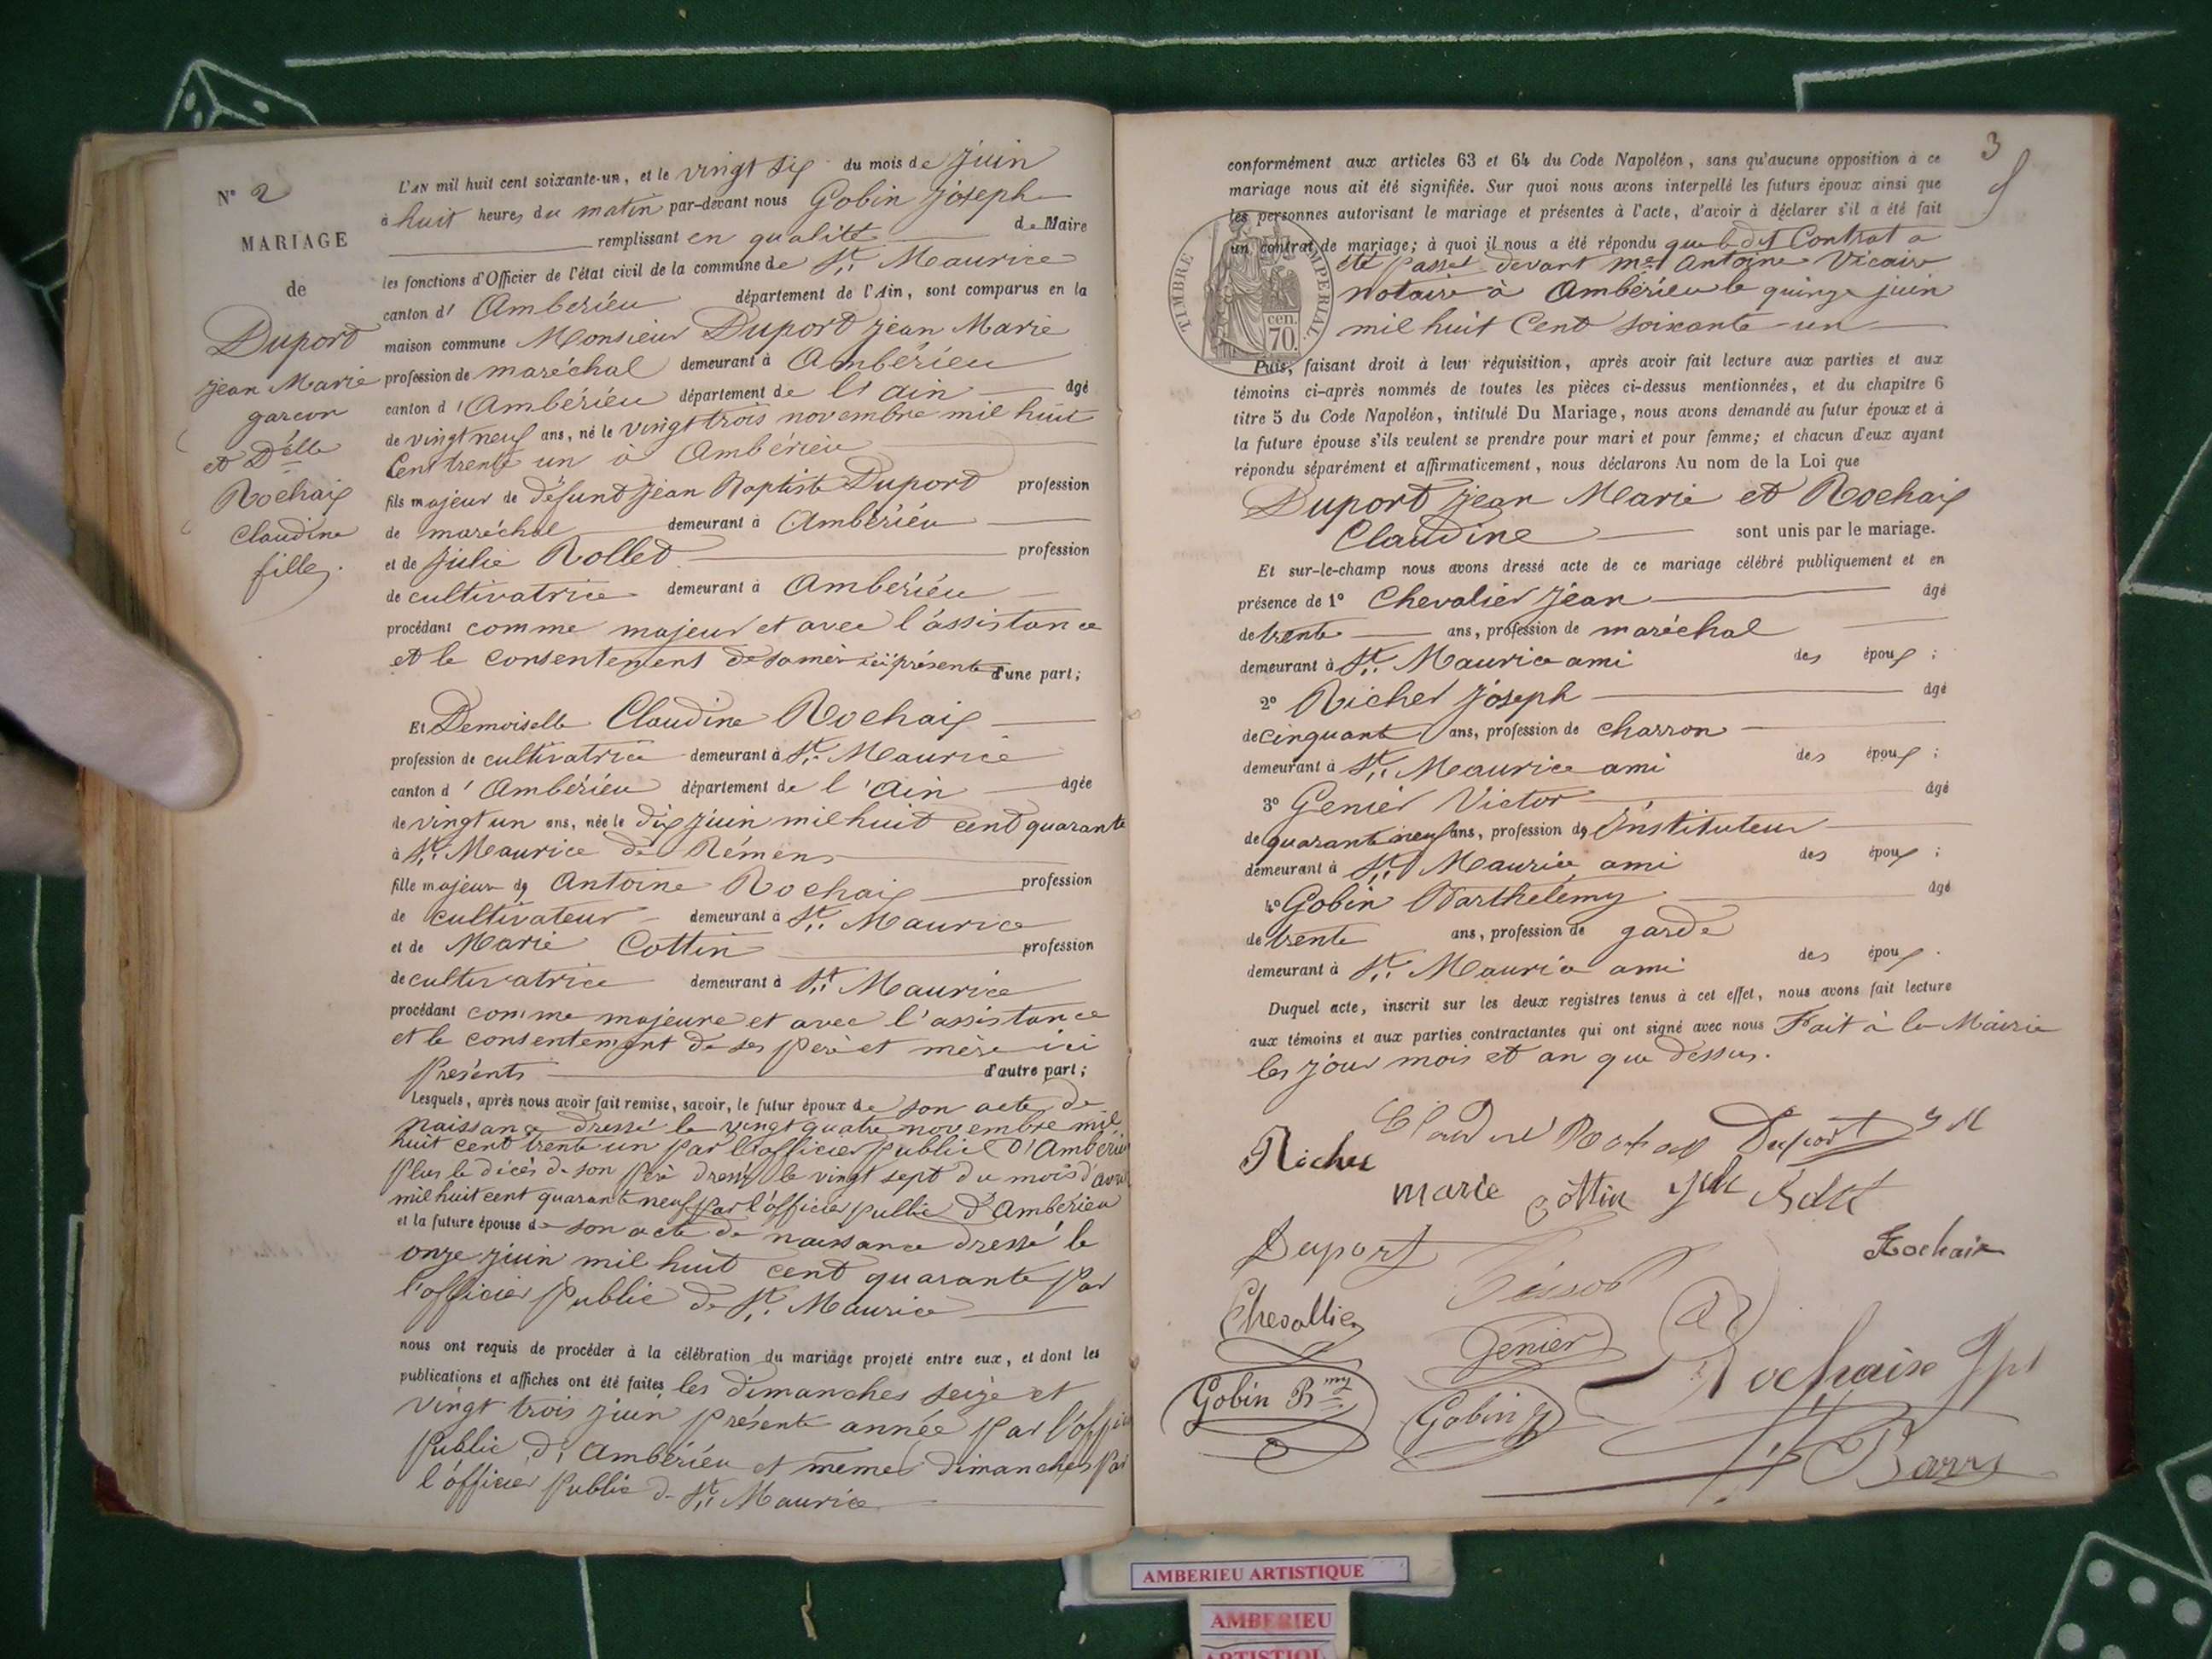 N° 2
MARIAGE
de
Duport
jean Marie
garçon
et Délle
Rochaix
Claudine
fille.
L'AN mil huit cent soixante-un, et le vingt six du mois de juin
à huit heures du matin par-devant nous Gobin joseph
remplissant en qualité de Maire
les fonctions d'Officier de l'état civil de la commune de St. Maurice
canton d' Ambérieu département de l'Ain, sont comparus en la
maison commune Monsieur Duport jean Marie
profession de maréchal demeurant à Ambérieu
canton d' Ambérieu département de l'ain âgé
de vingt neuf ans, né le vingt trois novembre mil huit
Cent trente un à Ambérieu
fils majeur de défunt jean Baptiste Duport profession
de maréchal demeurant à Ambérieu
et de julie Rollet profession
de cultivatrice demeurant à Ambérieu
procédant comme majeur et avec l'assistance
et le consentement de sa mère ici présente d'une part;
Et Demoiselle Claudine Rochaix
profession de cultivatrice demeurant à St. Maurice
canton d' Ambérieu département de l'ain âgée
de vingt un ans, née le dix juin mil huit cent quarante
à St. Maurice de Rémens
fille majeure de Antoine Rochaix profession
de cultivateur demeurant à St. Maurice
et de Marie Cottin profession
de cultivatrice demeurant à St. Maurice
procédant comme majeure et avec l'assistance
et le consentement de ses père et mère ici
présents d'autre part;
Lesquels, après nous avoir fait remise, savoir, le futur époux de son acte de
naissance dressé le vingt quatre novembre mil
huit cent trente un par l'officier public d'Ambérieu
Plus le décès de son père dressé le vingt sept du mois d'avril
mil huit cent quarante neuf par l'officier public d'Ambérieu
et la future épouse de son acte de naissance dressé le
onze juin mil huit cent quarante par
l'officier public de St. Maurice
nous ont requis de procéder à la célébration du mariage projeté entre eux, et dont les
publications et affiches ont été faites les dimanches seize et
vingt trois juin présente année par l'officier
public d'Ambérieu et memes dimanches par
l'officier public de St. Maurice
3
conformément aux articles 63 et 64 du Code Napoléon, sans qu'aucune opposition à ce
mariage nous ait été signifiée. Sur quoi nous avons interpellé les futurs époux ainsi que
les personnes autorisant le mariage et présentes à l'acte, d'avoir à déclarer s'il a été fait
un contrat de mariage; à quoi il nous a été répondu que le dit Contrat a
été passé devant me Antoine Vicaire
notaire à Ambérieu le quinze juin
mil huit Cent soixante un
TIMBRE IMPERIAL
cen.
70.
Puis, faisant droit à leur réquisition, après avoir fait lecture aux parties et aux
témoins ci-après nommés de toutes les pièces ci-dessus mentionnées, et du chapitre 6
titre 5 du Code Napoléon, intitulé Du Mariage, nous avons demandé au futur époux et à
la future épouse s'ils veulent se prendre pour mari et pour femme; et chacun d'eux ayant
répondu séparément et affirmativement, nous déclarons Au nom de la Loi que
Duport jean Marie et Rochaix
Claudine sont unis par le mariage.
Et sur-le-champ nous avons dressé acte de ce mariage célébré publiquement et en
présence de 1° Chevalier jean âgé
de trente ans, profession de maréchal
demeurant à St. Maurice ami des époux;
2° Richer joseph âgé
de cinquante ans, profession de charron
demeurant à St. Maurice ami des époux;
3° Genier Victor âgé
de quarante neuf ans, profession de Instituteur
demeurant à St. Maurice ami des époux;
4° Gobin Barthelemy âgé
de trente ans, profession de garde
demeurant à St. Maurice ami des époux.
Duquel acte, inscrit sur les deux registres tenus à cet effet, nous avons fait lecture
aux témoins et aux parties contractantes qui ont signé avec nous Fait à la Mairie
les jour mois et an que dessus.
Duport J M
Richer
marie Cottin
Duport
Rochaix
Chevallier
Genier
Rochaise Jph
Gobin Bmy
Gobin J
AMBERIEU ARTISTIQUE
AMBERIEU
ARTISTIQUE